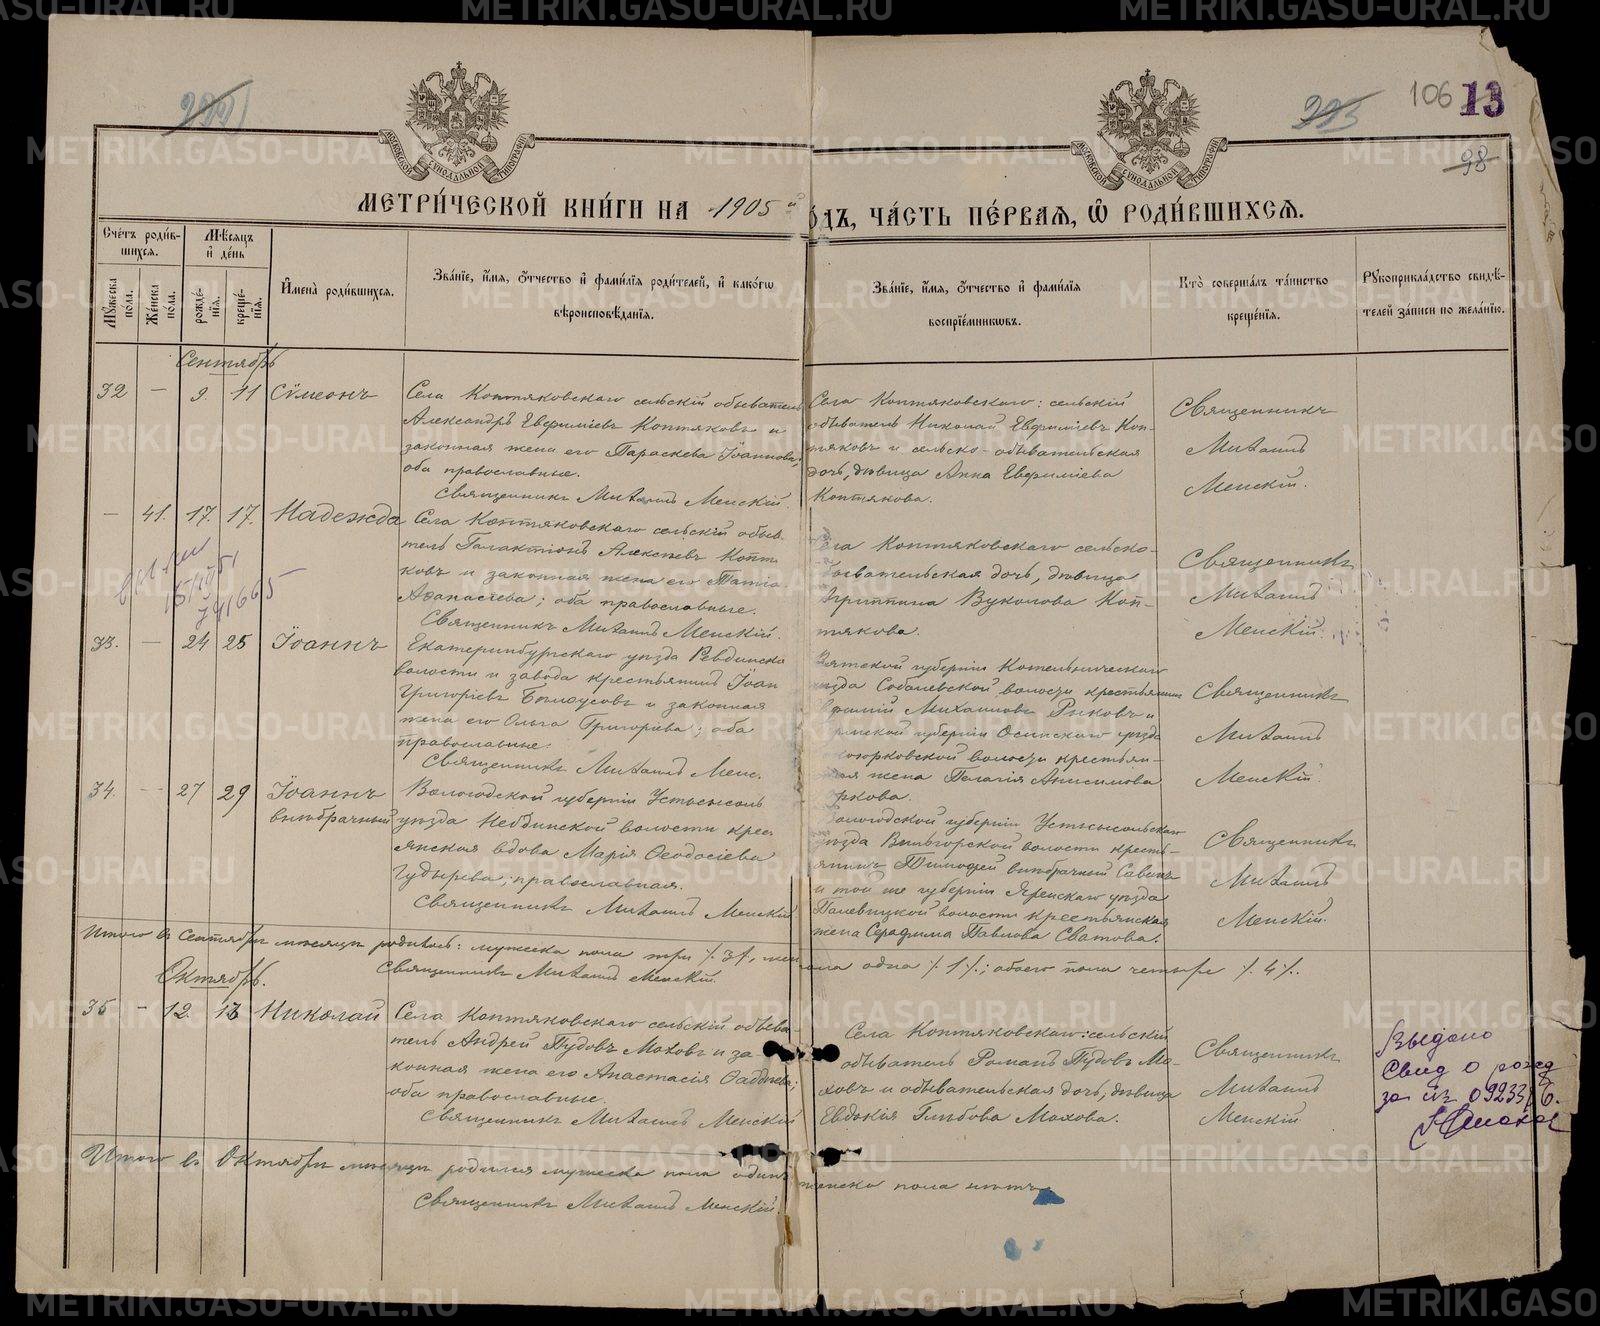 106 13
98
МЕТРИЧЕСКОЙ КНИГИ НА 1905й
ОДЪ, ЧАСТЬ ПЕРВАЯ, Ѿ РОДИВШИХСЯ.
Счетъ родив-
шихся.
Мѣсяцъ
и день
Мужеска
пола.
Женска
пола.
рожде-
нїя.
креще-
нїя.
Имена родившихся.
Званїе, имя, отчество и фамилїя родителей, и какогѡ
вѣроисповѣданїя.
Званїе, имя, отчество и фамилїя
воспрїемникѡвъ.
Кто совершалъ таинство
крещенїя.
Рукоприкладство свидѣ-
телей записи по желанїю.
Сентябрь
32 — 9. 11 Сѵмеонъ
Села Коптяковскаго сельскій обыватель
Александръ Евфиміевъ Коптяковъ и
законная жена его Параскева Іоаннова,
оба православные.
Священникъ Михаилъ Менскій.
Села Коптяковскаго: сельскій
обыватель Николай Евфиміевъ Коп-
тяковъ и сельско-обывательская
дочь, дѣвица Анна Евфиміева
Коптякова.
Священникъ
Михаилъ
Менскій.
— 41. 17. 17. Надежда
Села Коптяковскаго сельскій обыв.
тель Галактіонъ Алексѣевъ Копт
ковъ и законная жена его Татіа
Аѳанасіева; оба православные.
Священникъ Михаилъ Менскій.
Села Коптяковскаго сельско-
бывательская дочь, дѣвица
Агриппина Вуколова Коп-
тякова.
Священникъ
Михаилъ
Менскій.
741665
33. — 24 25 Іоаннъ
Екатеринбургскаго уѣзда Ревдинско
волости и завода крестьянинъ Іоан
Григоріевъ Бѣлоусовъ и законная
жена его Ольга Григоріева; оба
православные.
Священникъ Михаилъ Менс.
Вятской губерніи Котельническаго
уѣзда Собалевской волости крестьянин
Михаиловъ Рыковъ и
рмской губерніи Осинскаго уѣзда
волости крестьян-
ая жена Пелагія Анисимова
ркова.
Священникъ
Михаилъ
Менскій.
34. — 27 29 Іоаннъ
внѣбрачный
Вологодской губерніи Устьсысоль
уѣзда Небдинской волости крес
янская вдова Марія Ѳеодосіева
Гудырева; православная.
Священникъ Михаилъ Менскій
ологодской губерніи Устьсысольскаго
уѣзда Вильгорской волости кресть-
янинъ Тимофей внѣбрачный Савинъ
и той же губерніи Яренскаго уѣзда
Палевицкой волости крестьянская
жена Серафима Павлова Сватова.
Священникъ
Михаилъ
Менскій.
Итого въ сентябрѣ мѣсяцѣ родилось: мужеска пола три /. 3/., жен
ола одна /. 1/.; обоего пола четыре /. 4/..
Священникъ Михаилъ Менскій.
Октябрь.
35 — 12. 13 Николай
Села Коптяковскаго сельскій обыва-
тель Андрей Пудовъ Моховъ и за-
конная жена его Анастасія Ѳаддеева;
оба православные.
Священникъ Михаилъ Менскій
Села Коптяковскаго: сельскій
обыватель Романъ Пудовъ Мо-
ховъ и обывательская дочь, дѣвица
Евдокія Глѣбова Мохова.
Священникъ
Михаилъ
Менскій
Выдано
Свид о рожд
за
Итого въ Октябрѣ мѣсяцѣ родился мужеска пола одинъ
женска пола нѣтъ
Священникъ Михаилъ Менскій.
METRIKI.GASO-URAL.RU